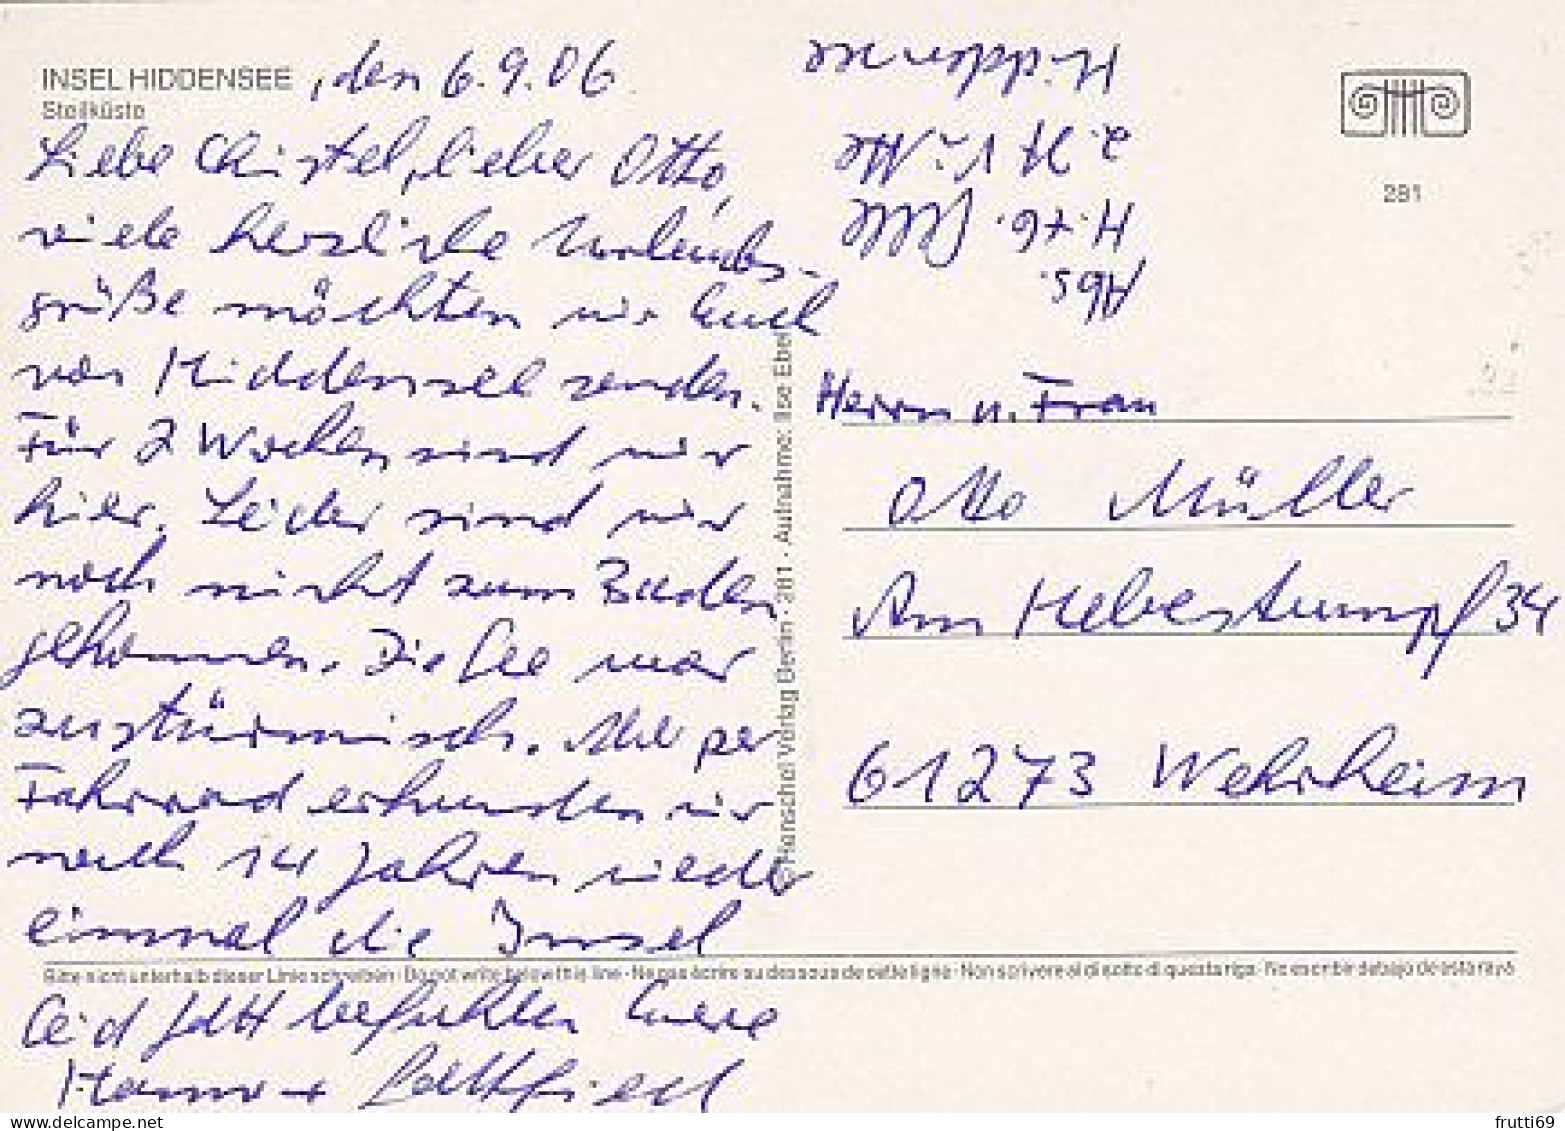 INSEL HIDDENSEE, den 6.9.06
Steilküste
Liebe Christel, lieber Otto,
viele herzliche Urlaubs-
grüße möchten wir Euch
von Hiddensee senden.
Für 2 Wochen sind wir
hier. Leider sind wir
noch nicht zum Baden
gekommen. Die See war
zu stürmisch. Aber per
Fahrrad erkunden wir
nach 14 Jahren wieder
einmal die Insel
Bitte nicht unterhalb dieser Linie schreiben · Do not write below this line · Ne pas écrire au dessous de cette ligne · Non scrivere al di sotto di questa riga · No escribir debajo de esta raya
Seid Gott befohlen Eure
Hanna + Gottfried
© Hanschel Verlag Berlin · 281 · Aufnahme: Ilse Ebel
Abs.
H. + G.
z. Zt Vitte
Hiddensee
281
Herrn u. Frau
Otto Müller
Am Hebestumpf 34
61273 Wehrheim
frutti69